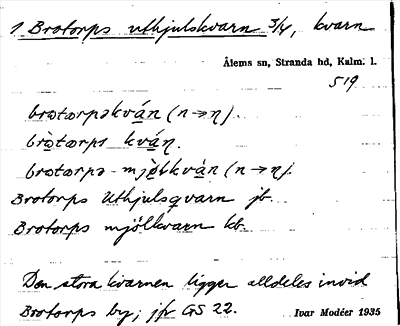 1 Brotorps uthjulskvarn 3/4, kvarn
Ålems sn, Stranda hd, Kalm. l.
519
brotorpskván (n→ŋ).
brotorps kváŋ.
brotorps-mjö̀lkvàn (n→ŋ).
Brotorps Uthjulsqvarn jb.
Brotorps mjölkvarn kb.
Den stora kvarnen ligger alldeles invid
Brotorps by; jfr GS 22.
Ivar Modéer 1935